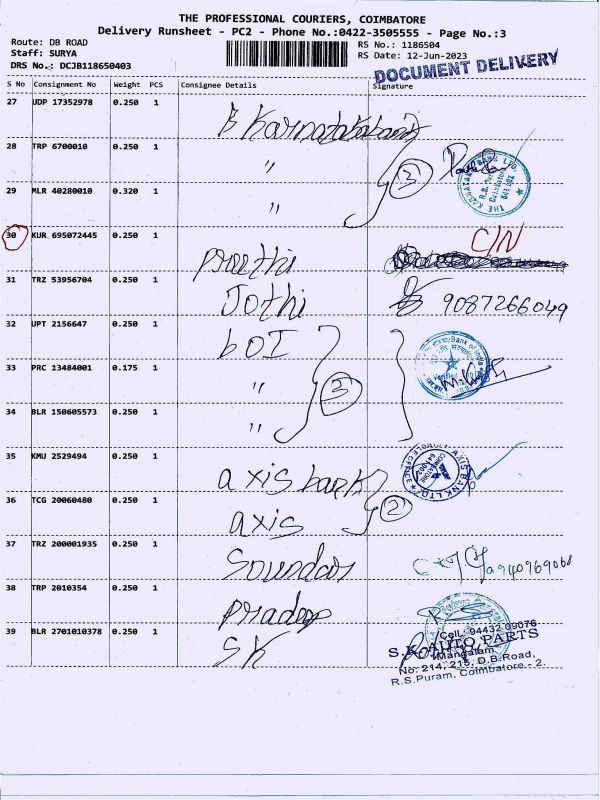 THE PROFESSIONAL COURIERS, COIMBATORE
Delivery Runsheet - PC2 - Phone No.:0422-3505555 - Page No.:3
Route: DB ROAD
Staff: SURYA
DRS No.: DCJB118650403
RS No.: 1186504
RS Date: 12-Jun-2023
DOCUMENT DELIVERY
S No Consignment No Weight PCS Consignee Details Signature
27 UDP 17352978 0.250 1 Karnatakabank
28 TRP 6700010 0.250 1 "
29 MLR 40280010 0.320 1 " 3
30 KUR 695072445 0.250 1 Preethi C/N
31 TRZ 53956704 0.250 1 Jothi 9087266049
32 UPT 2156647 0.250 1 BOI
33 PRC 13484001 0.175 1 " 3
34 BLR 150605573 0.250 1 "
35 KMU 2529494 0.250 1 axis bank
36 TCG 20060480 0.250 1 axis 2
37 TRZ 200001935 0.250 1 Soundar
38 TRP 2010354 0.250 1 Pradeep
39 BLR 2701010378 0.250 1 SK
Cell: 94432 09076
S.K. AUTO PARTS
Mangalam
No: 214, 215, D.B.Road,
R.S.Puram, Coimbatore - 2.